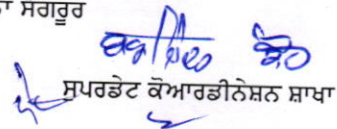 ਾ ਸਗਰੂਰ
ਸੁਪਰਡੇਟ ਕੋਆਰਡੀਨੇਸ਼ਨ ਸ਼ਾਖਾ